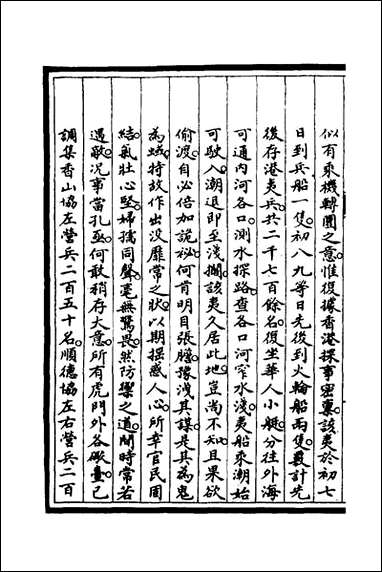 似有乘機轉圜之意惟復據香港探事密稟該夷於初七
日到兵船一隻初八九等日先後到火輪船兩隻覈計先
後存港夷兵共二千七百餘名復坐華人小艇分往外海
可通內河各口測水探路查各口河窄水淺夷船來潮始
可駛入潮退即至淺擱該夷久居此地豈尚不知且果欲
偷渡自必倍加詭祕何肯明目張膽豫洩其謀是其為鬼
為蜮特故作出沒靡常之狀以期搖惑人心所幸官民固
結氣壯心堅婦孺同聲毫無驚畏然防禦之道閒時常若
遇敵況事當孔亟何敢稍存大意所有虎門外各礮臺已
調集香山協左營兵二百五十名順德協左右營兵二百